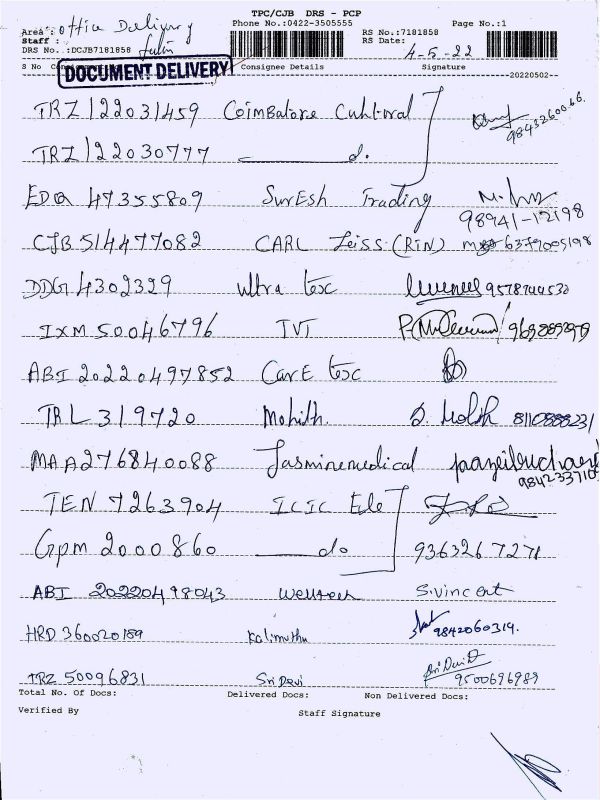 TPC/CJB DRS - PCP
Area : office Delivery
Phone No.:0422-3505555
Page No.:1
Staff :
DRS No.:DCJB7181858
RS No.:7181858
RS Date:
4-5-22
S No
Consignee Details
Signature
DOCUMENT DELIVERY
20220502
TRZ 122031459 Coimbatore Cultural 9843260066
TRZ 122030777 do.
EDQ 47355809 SurEsh Trading 98941-12198
CJB 514477082 CARL Zeiss (RIN) 6379005198
DDG 4302329 ultra tesc
IXM 50046796 TVT
ABI 20220497852 CarE tesc
TRL 319720 Mohith. 8110888231
MAA276840088 Jasminemedical 984233710
TEN 7263904 ICIC
GPM 2000860 do 9363267271
ABI 20220498043 S.vincent
HRD 360020189 Kalimuthu 9842060314.
TRZ 50096831 Sri Devi Sri Devi 9500696989
Total No. Of Docs:
Delivered Docs:
Non Delivered Docs:
Verified By
Staff Signature